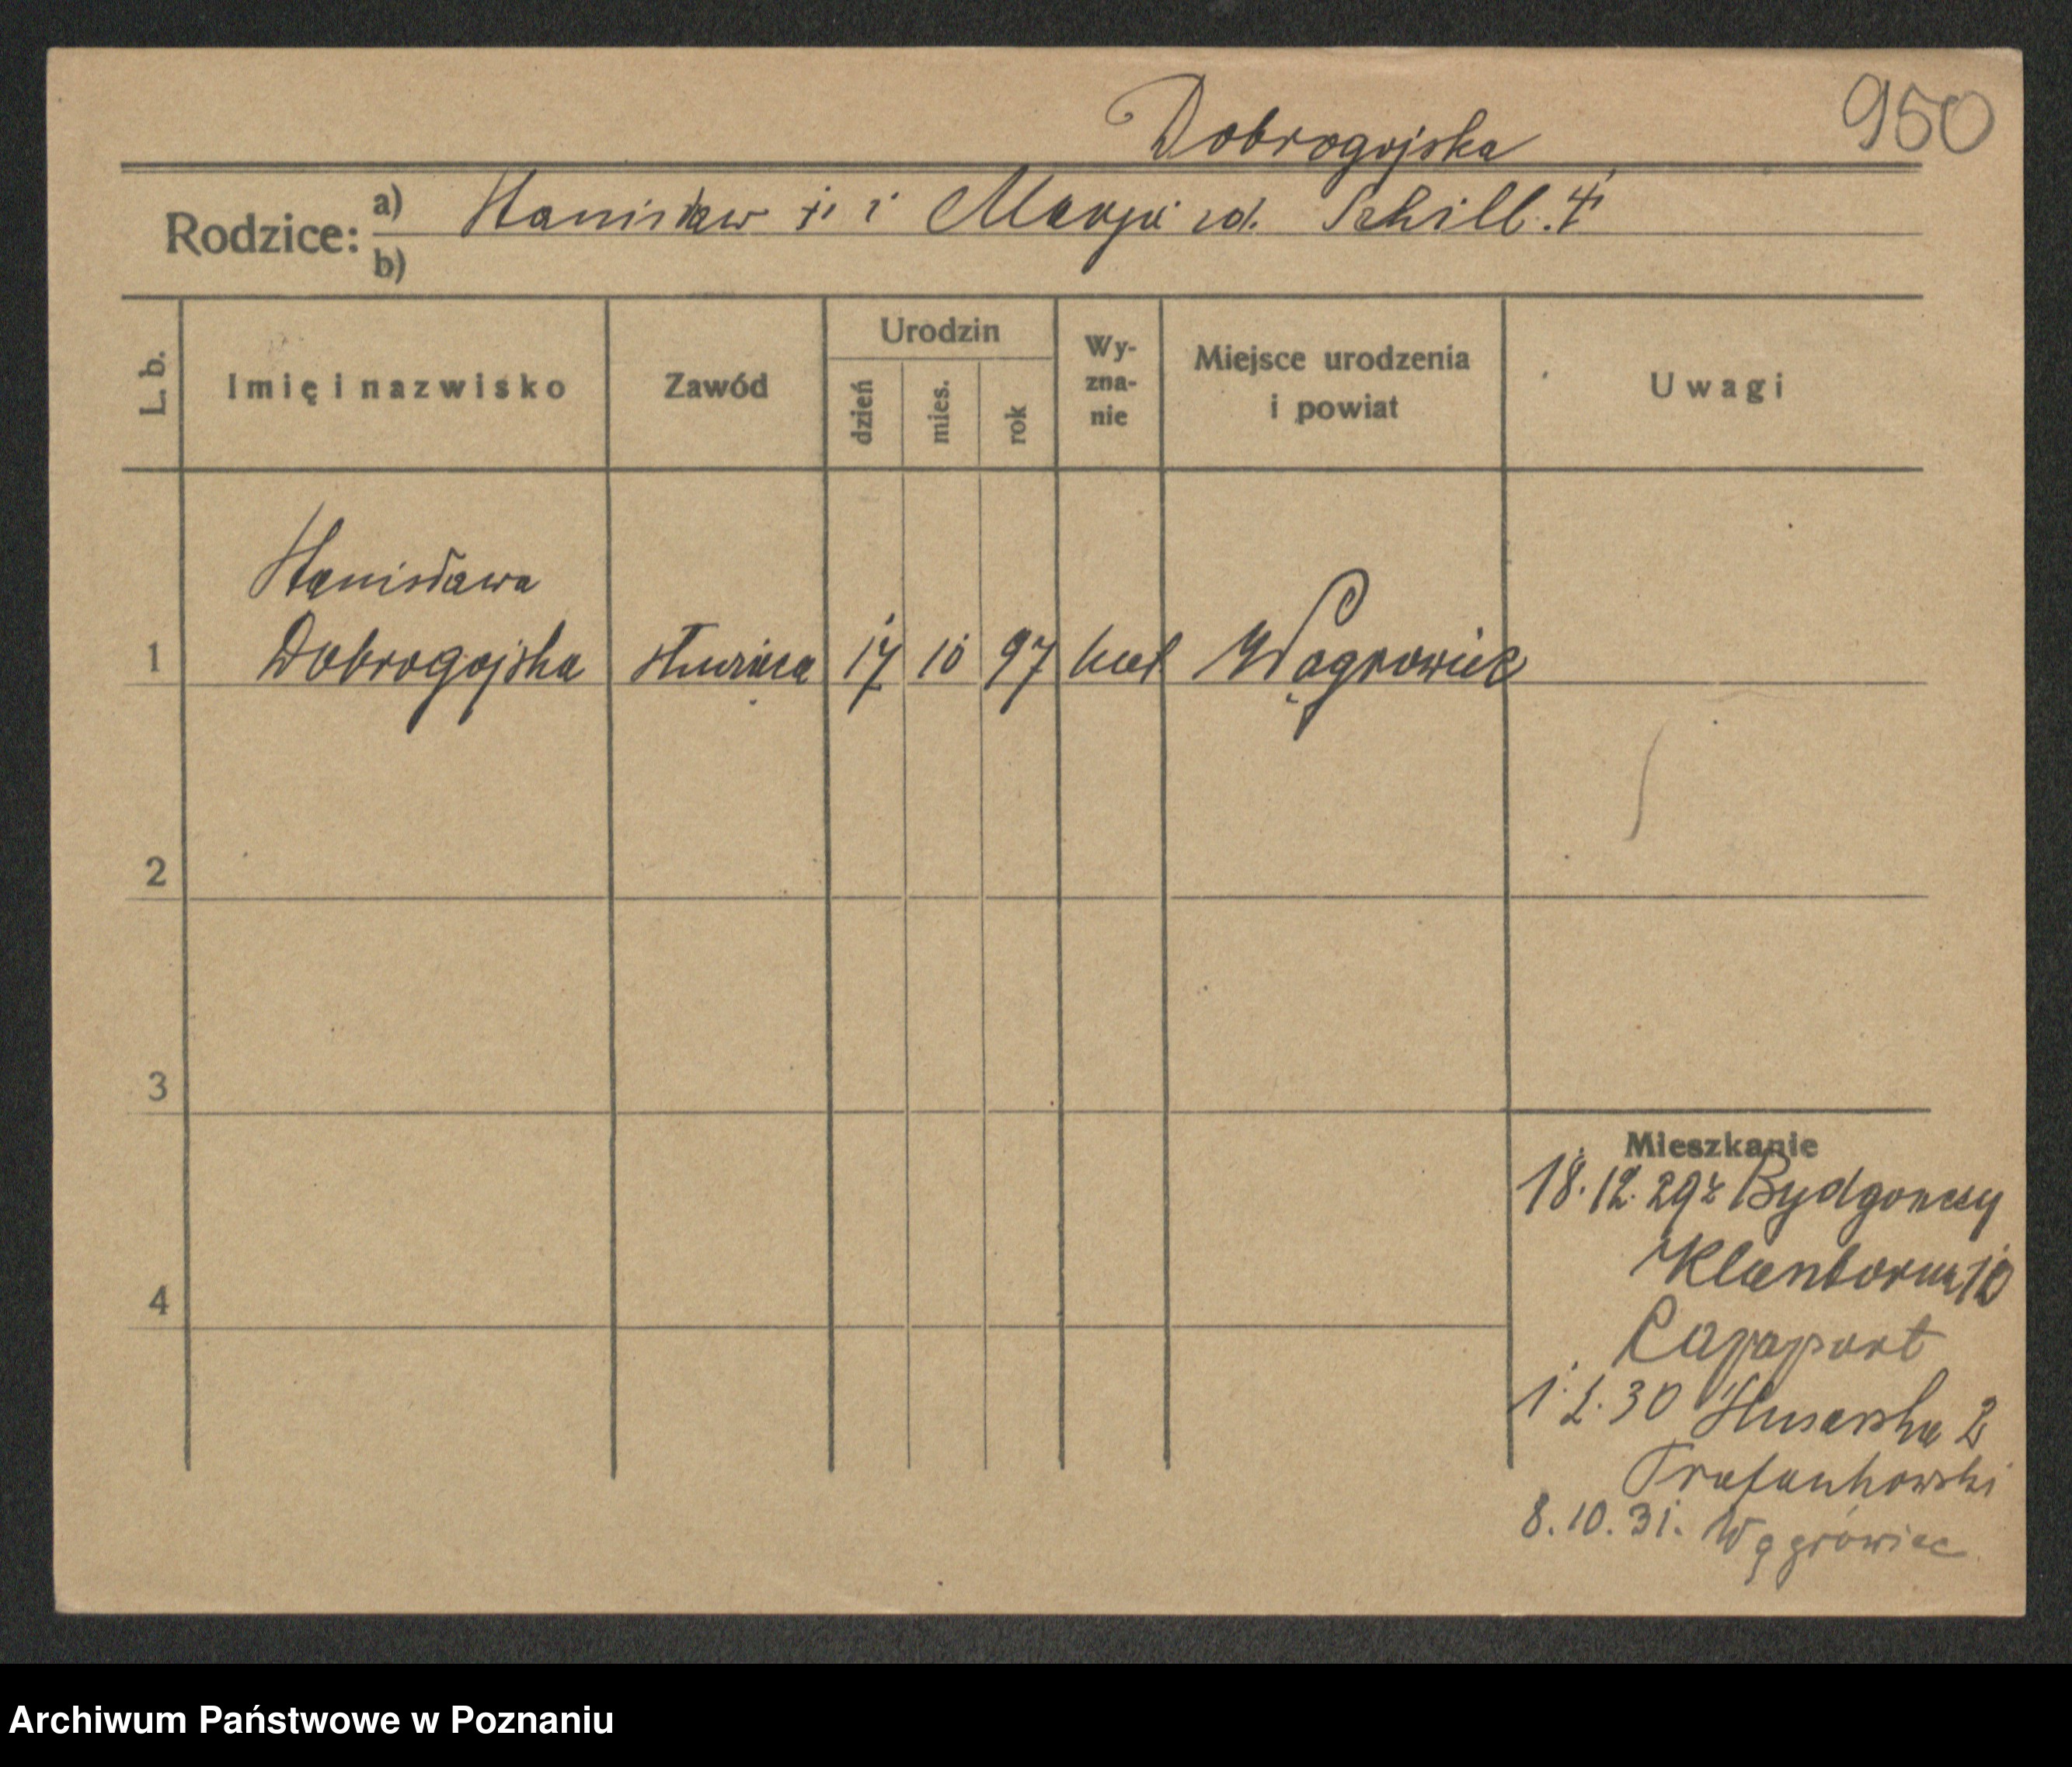 950
Dobrogojska
Rodzice: a) Stanisław ż. i Marya zd. Schill. 4
b)
L. b. Imię i nazwisko Zawód Urodzin dzień mies. rok Wy-zna-nie Miejsce urodzenia i powiat Uwagi
Stanisława
1 Dobrogojska służąca 17 10 97 kat Wągrowiec
2
3
Mieszkanie
18.12.29 z Bydgoszczy
4
Rapaport
1 2.30 Husarska 2
8.10.31. Wągrówiec
Archiwum Państwowe w Poznaniu